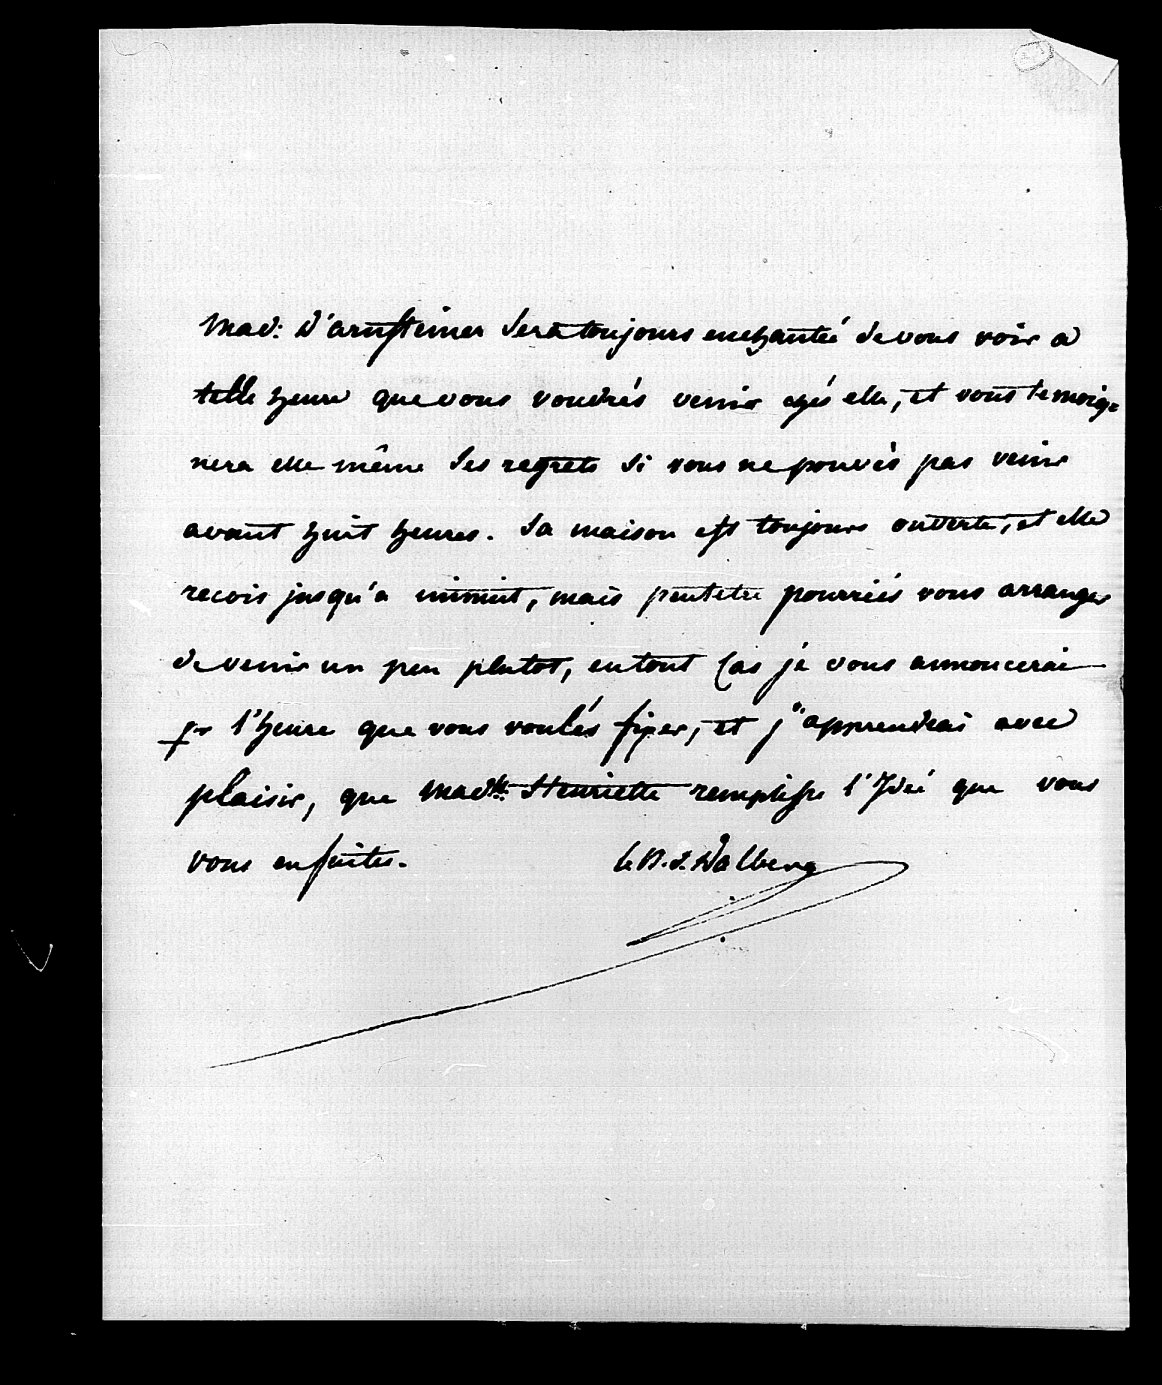 Mad: d'arnsteiner sera toujours enchantée de vous voir a
telle heure que vous voudrés venir chés elle, et vous temoig=
nera elle même ses regrets si vous ne pouvés pas venir
avant huit heures. Sa maison est toujours ouverte, et elle
recois jusqu'a minuit, mais peutetre pourriés vous arranger
de venir un peu plutot, en tout Cas je vous annoncerai
pr l'heure que vous voulés fixer, et j'apprendrai avec
plaisir, que Madlle: Henriette remplisse l'Idée que vous
vous en faites. le B. d. Walberg